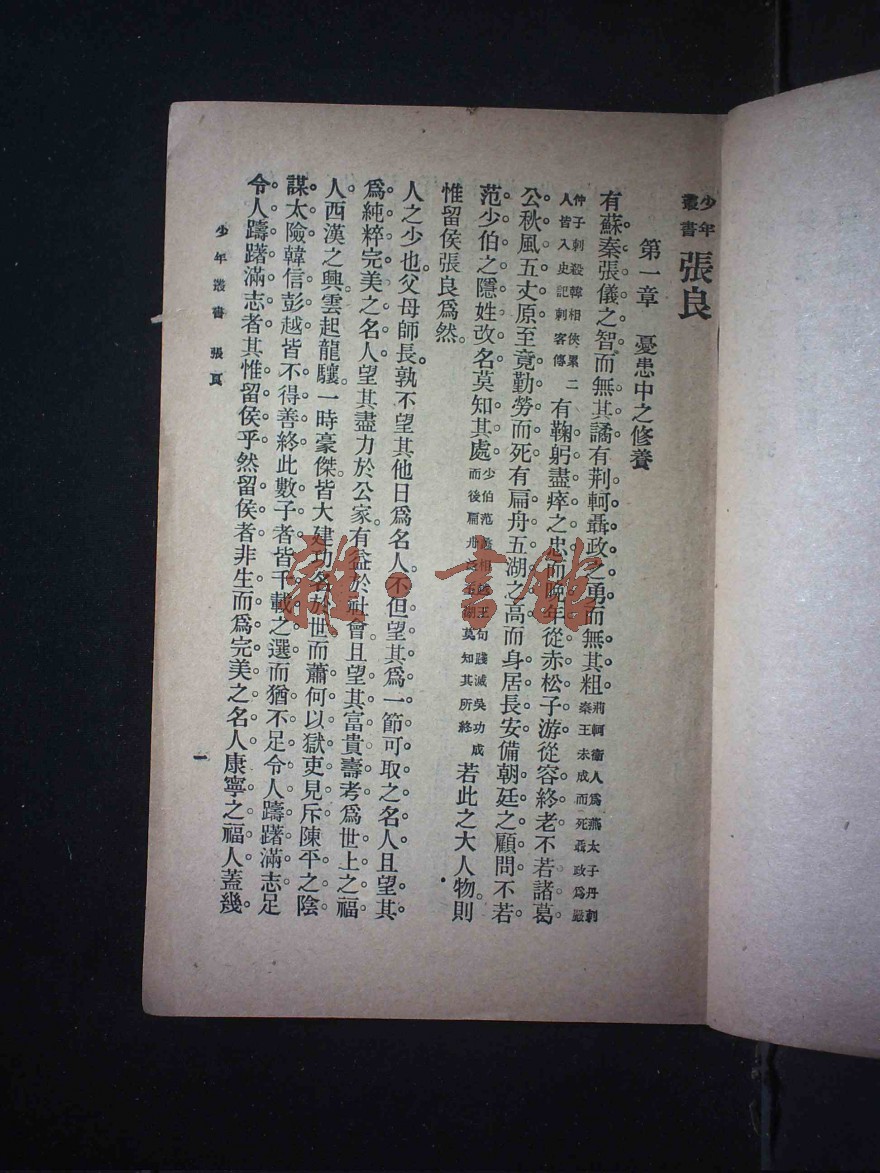 少年叢書 張良
第一章 憂患中之修養
有蘇秦張儀之智。而無其譎。有荆軻聶政之勇。而無其粗。荊軻衞人爲燕太子丹刺秦王未成而死聶政爲嚴
仲子刺殺韓相俠累二人皆入史記刺客傳 有鞠躬盡瘁之忠。而晚年從赤松子游。從容終老。不若諸葛
公秋風五丈原。至竟勤勞而死。有扁舟五湖之高。而身居長安。備朝廷之顧問。不若
范少伯之隱姓改名。莫知其處。少伯范蠡相越王句踐滅吳功成而後扁舟泛五湖莫知其所終 若此之大人物。則
惟留侯張良爲然。
人之少也。父母師長。孰不望其他日爲名人。不但望其爲一節可取之名人。且望其
爲純粹完美之名人。望其盡力於公家。有益於社會。且望其富貴壽考。爲世上之福
人。西漢之興。雲起龍驤。一時豪傑。皆大建功名於世。而蕭何以獄吏見斥。陳平之陰
謀太險。韓信彭越。皆不得善終。此數子者。皆千載之選。而猶不足令人躊躇滿志。足
令人躊躇滿志者。其惟留侯乎。然留侯者。非生而爲完美之名人。康寧之福人。蓋幾
少年叢書 張良
一
雜·書館